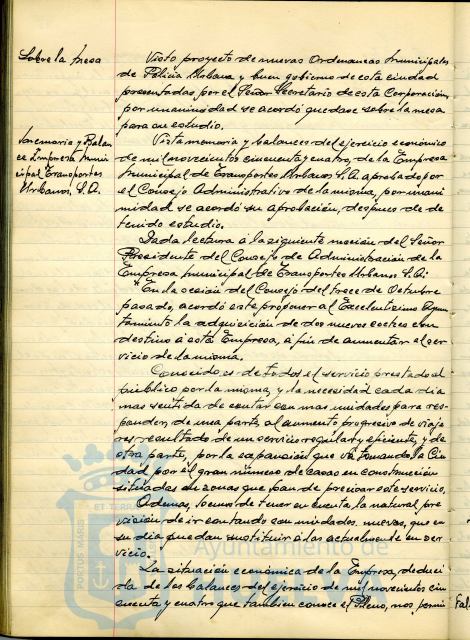 Sobre la mesa
Visto proyecto de nuevas Ordenanzas Municipales
de Policia Urbana y buen gobierno de esta ciudad
presentadas por el Señor Secretario de esta Corporación,
por unanimidad se acordó quedase sobre la mesa
para su estudio.
Memoria y Balan
ce Empresa Muni
cipal Transportes
Urbanos, S.A.
Vista memoria y balances del ejercicio económico
de mil novecientos cincuenta y cuatro, de la Empresa
Municipal de Transportes Urbanos S.A. aprobado por
el Consejo Administrativo de la misma, por unani
midad se acordó su aprobación, despues de de
tenido estudio.
Dada lectura á la siguiente moción del Señor
Presidente del Consejo de Administración de la
Empresa Municipal de Transportes Urbanos S.A:
"En la sesión del Consejo del trece de Octubre
pasado, acordó este proponer al Excelentisimo Ayun
tamiento la adquisición de dos nuevos coches con
destino á esta Empresa, á fin de aumentar el ser
vicio de la misma.
Conocido es de todos el servicio prestado al
público por la misma, y la necesidad cada dia
mas sentida de contar con mas unidades para res-
ponder, de una parte, al aumento progresivo de viaje
ros, resultado de un servicio regular y eficiente, y de
otra parte, por la expansión que va tomando la Ciu
dad, por el gran número de casas en construcción
situadas en zonas que han de precisar este servicio.
Ademas, hemos de tener en cuenta, la natural pre
visión de ir contando con unidades nuevas, que en
su dia puedan sustituir á las actualmente en ser
vicio.
La situación económica de la Empresa deduci
da de los balances del ejercicio de mil novecientos cin
cuenta y cuatro que tambien conoce el Pleno, nos permi
Fal
PORTUS MARIS
ET TERRAE
Ayuntamiento de